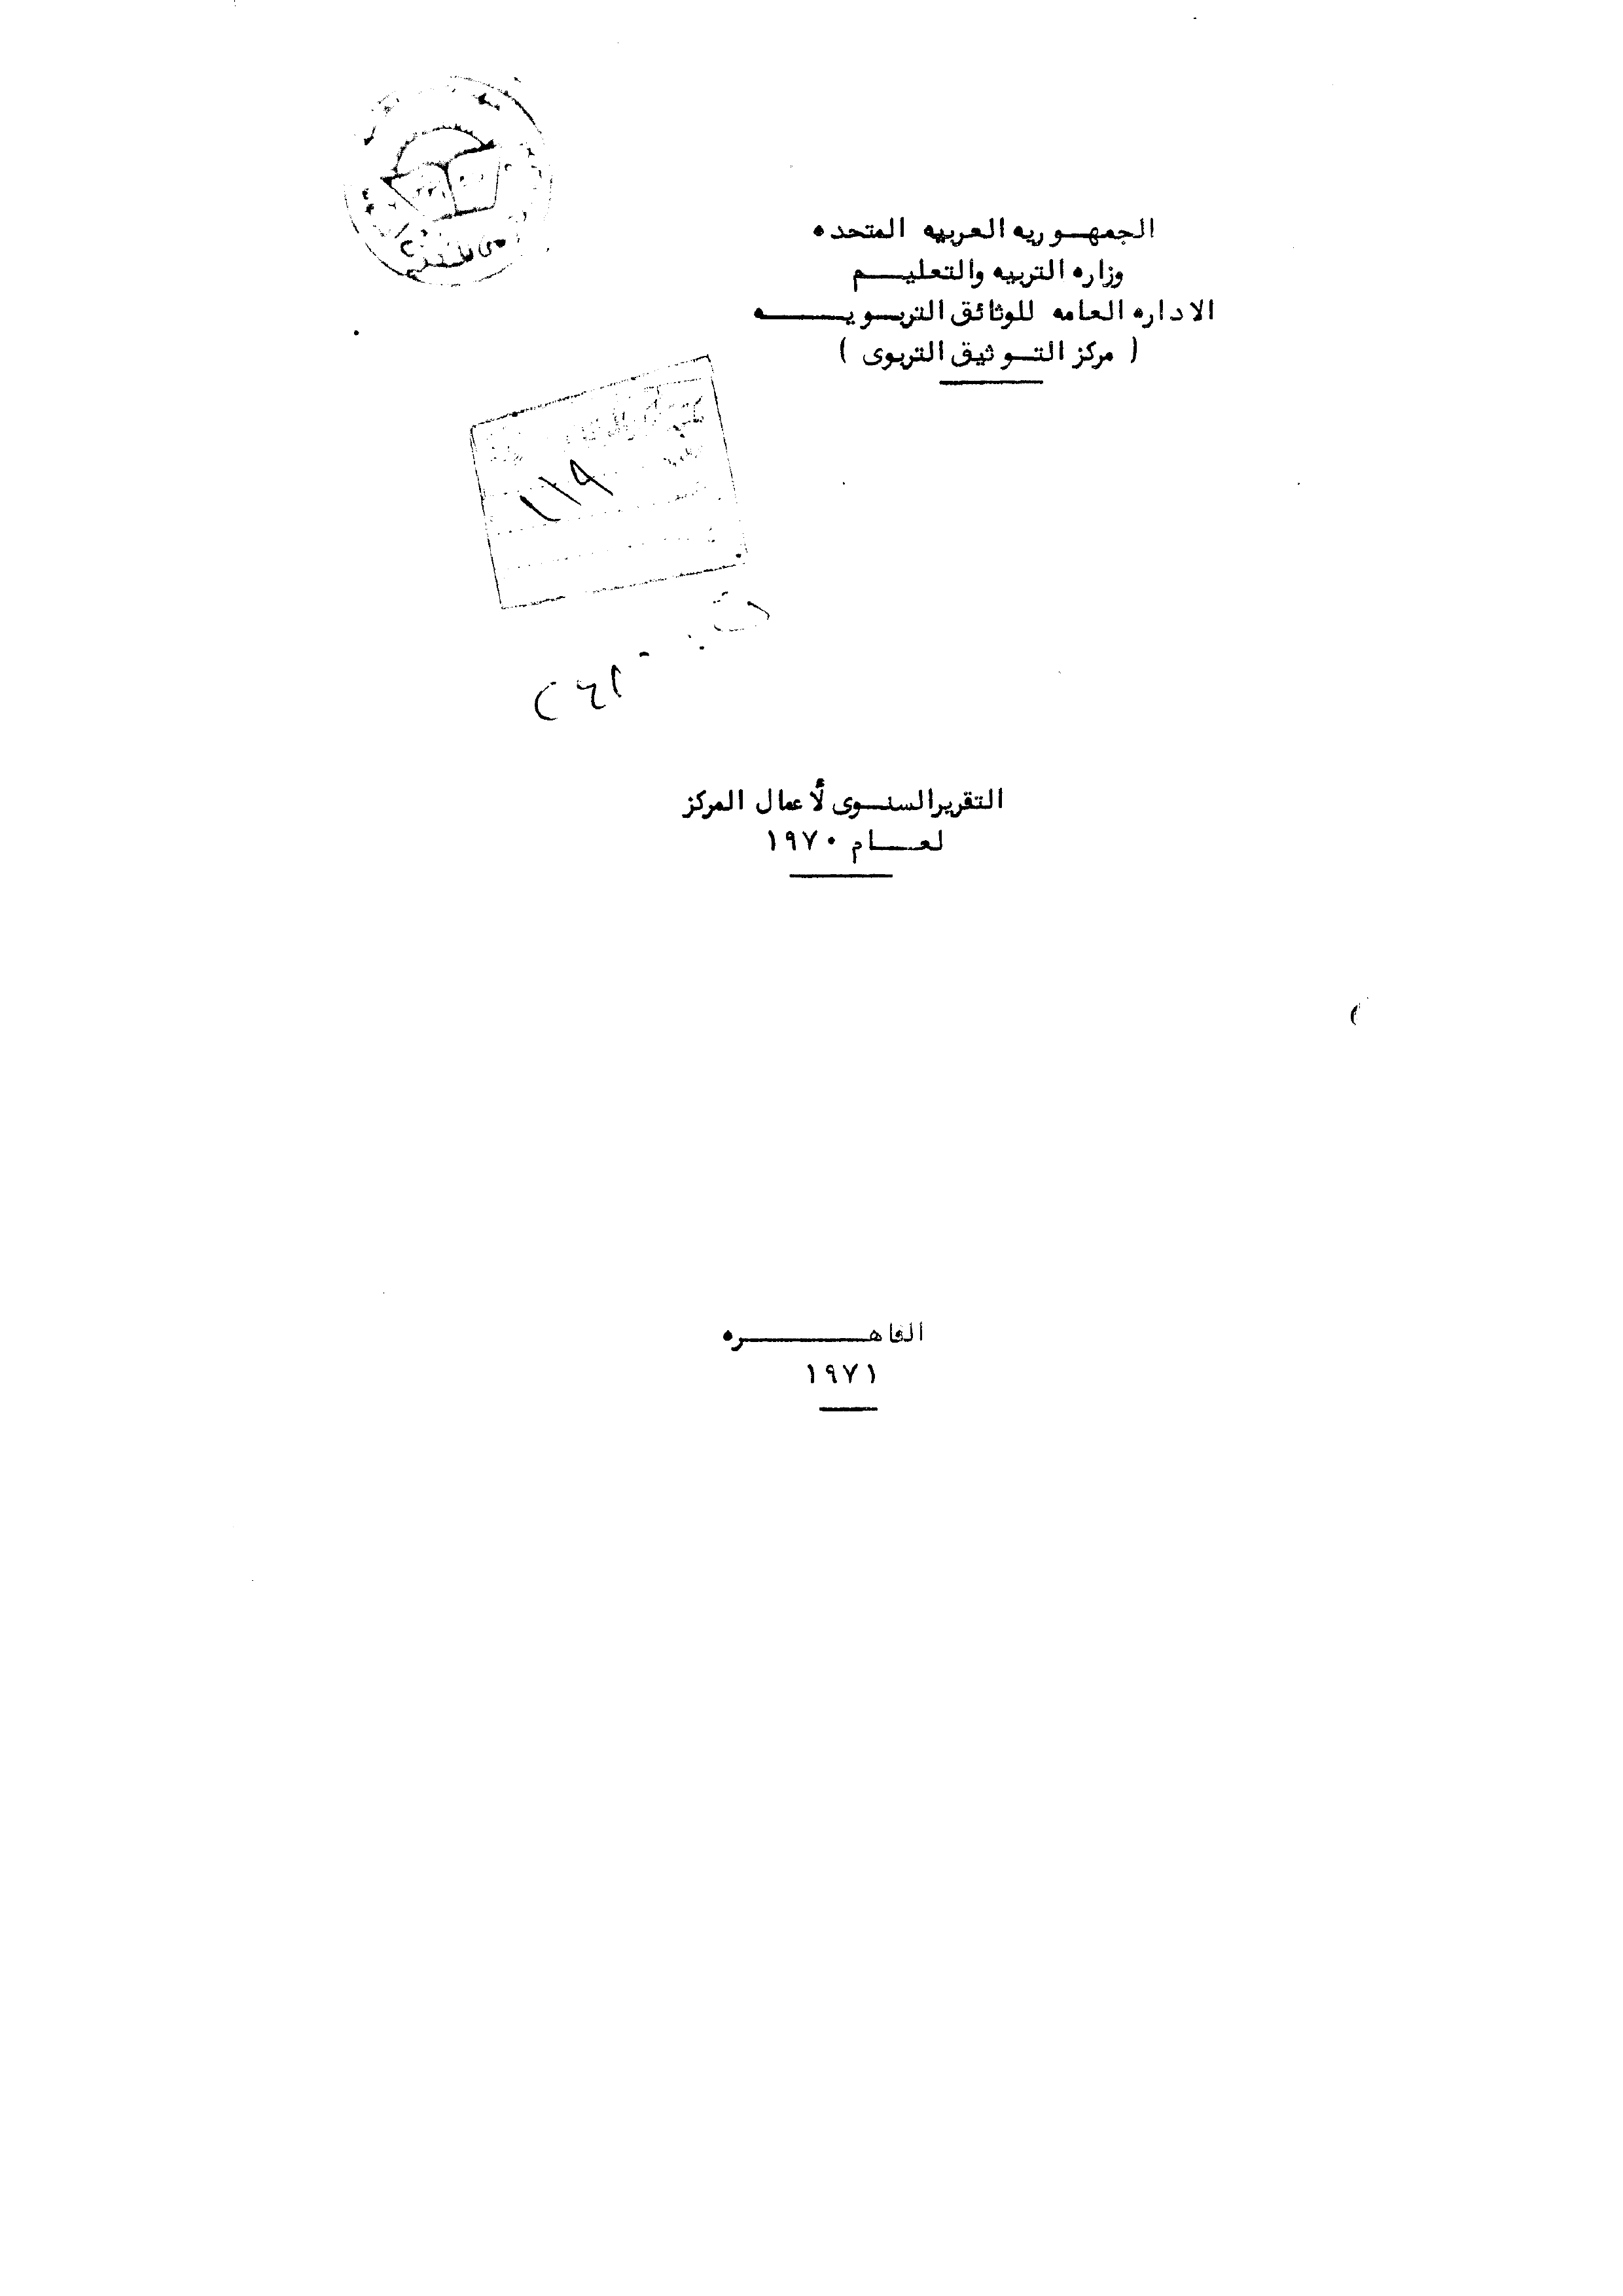 الجمهوريه العربيه المتحده
وزاره التربيه والتعليم
الاداره العامه للوثائق التربويه
( مركز التوثيق التربوى )
١١٩
التقرير السنوى لأعمال المركز
لعام ١٩٧٠
القاهره
١٩٧١